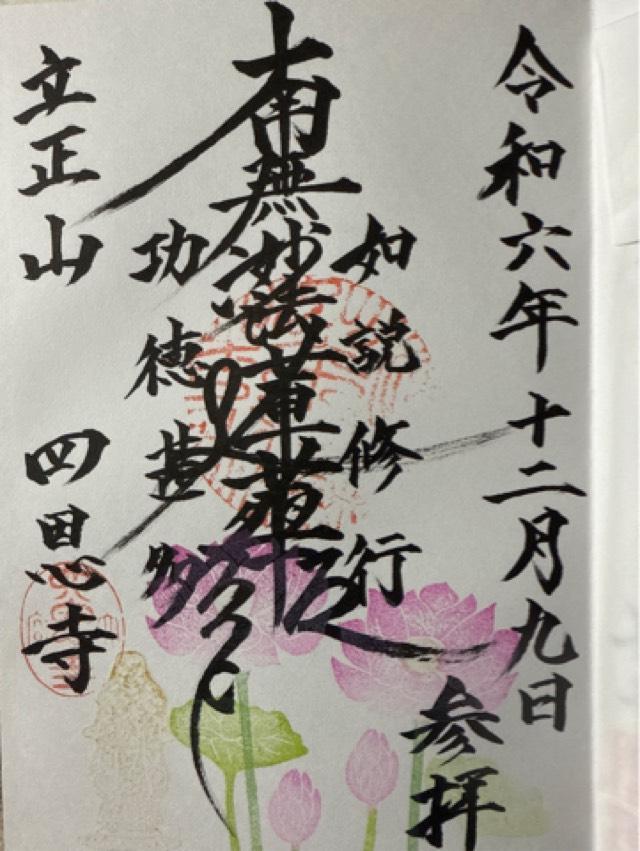 令和六年十二月九日
参拝
如説修行
南無妙法蓮華経
功徳甚多
立正山 四恩寺